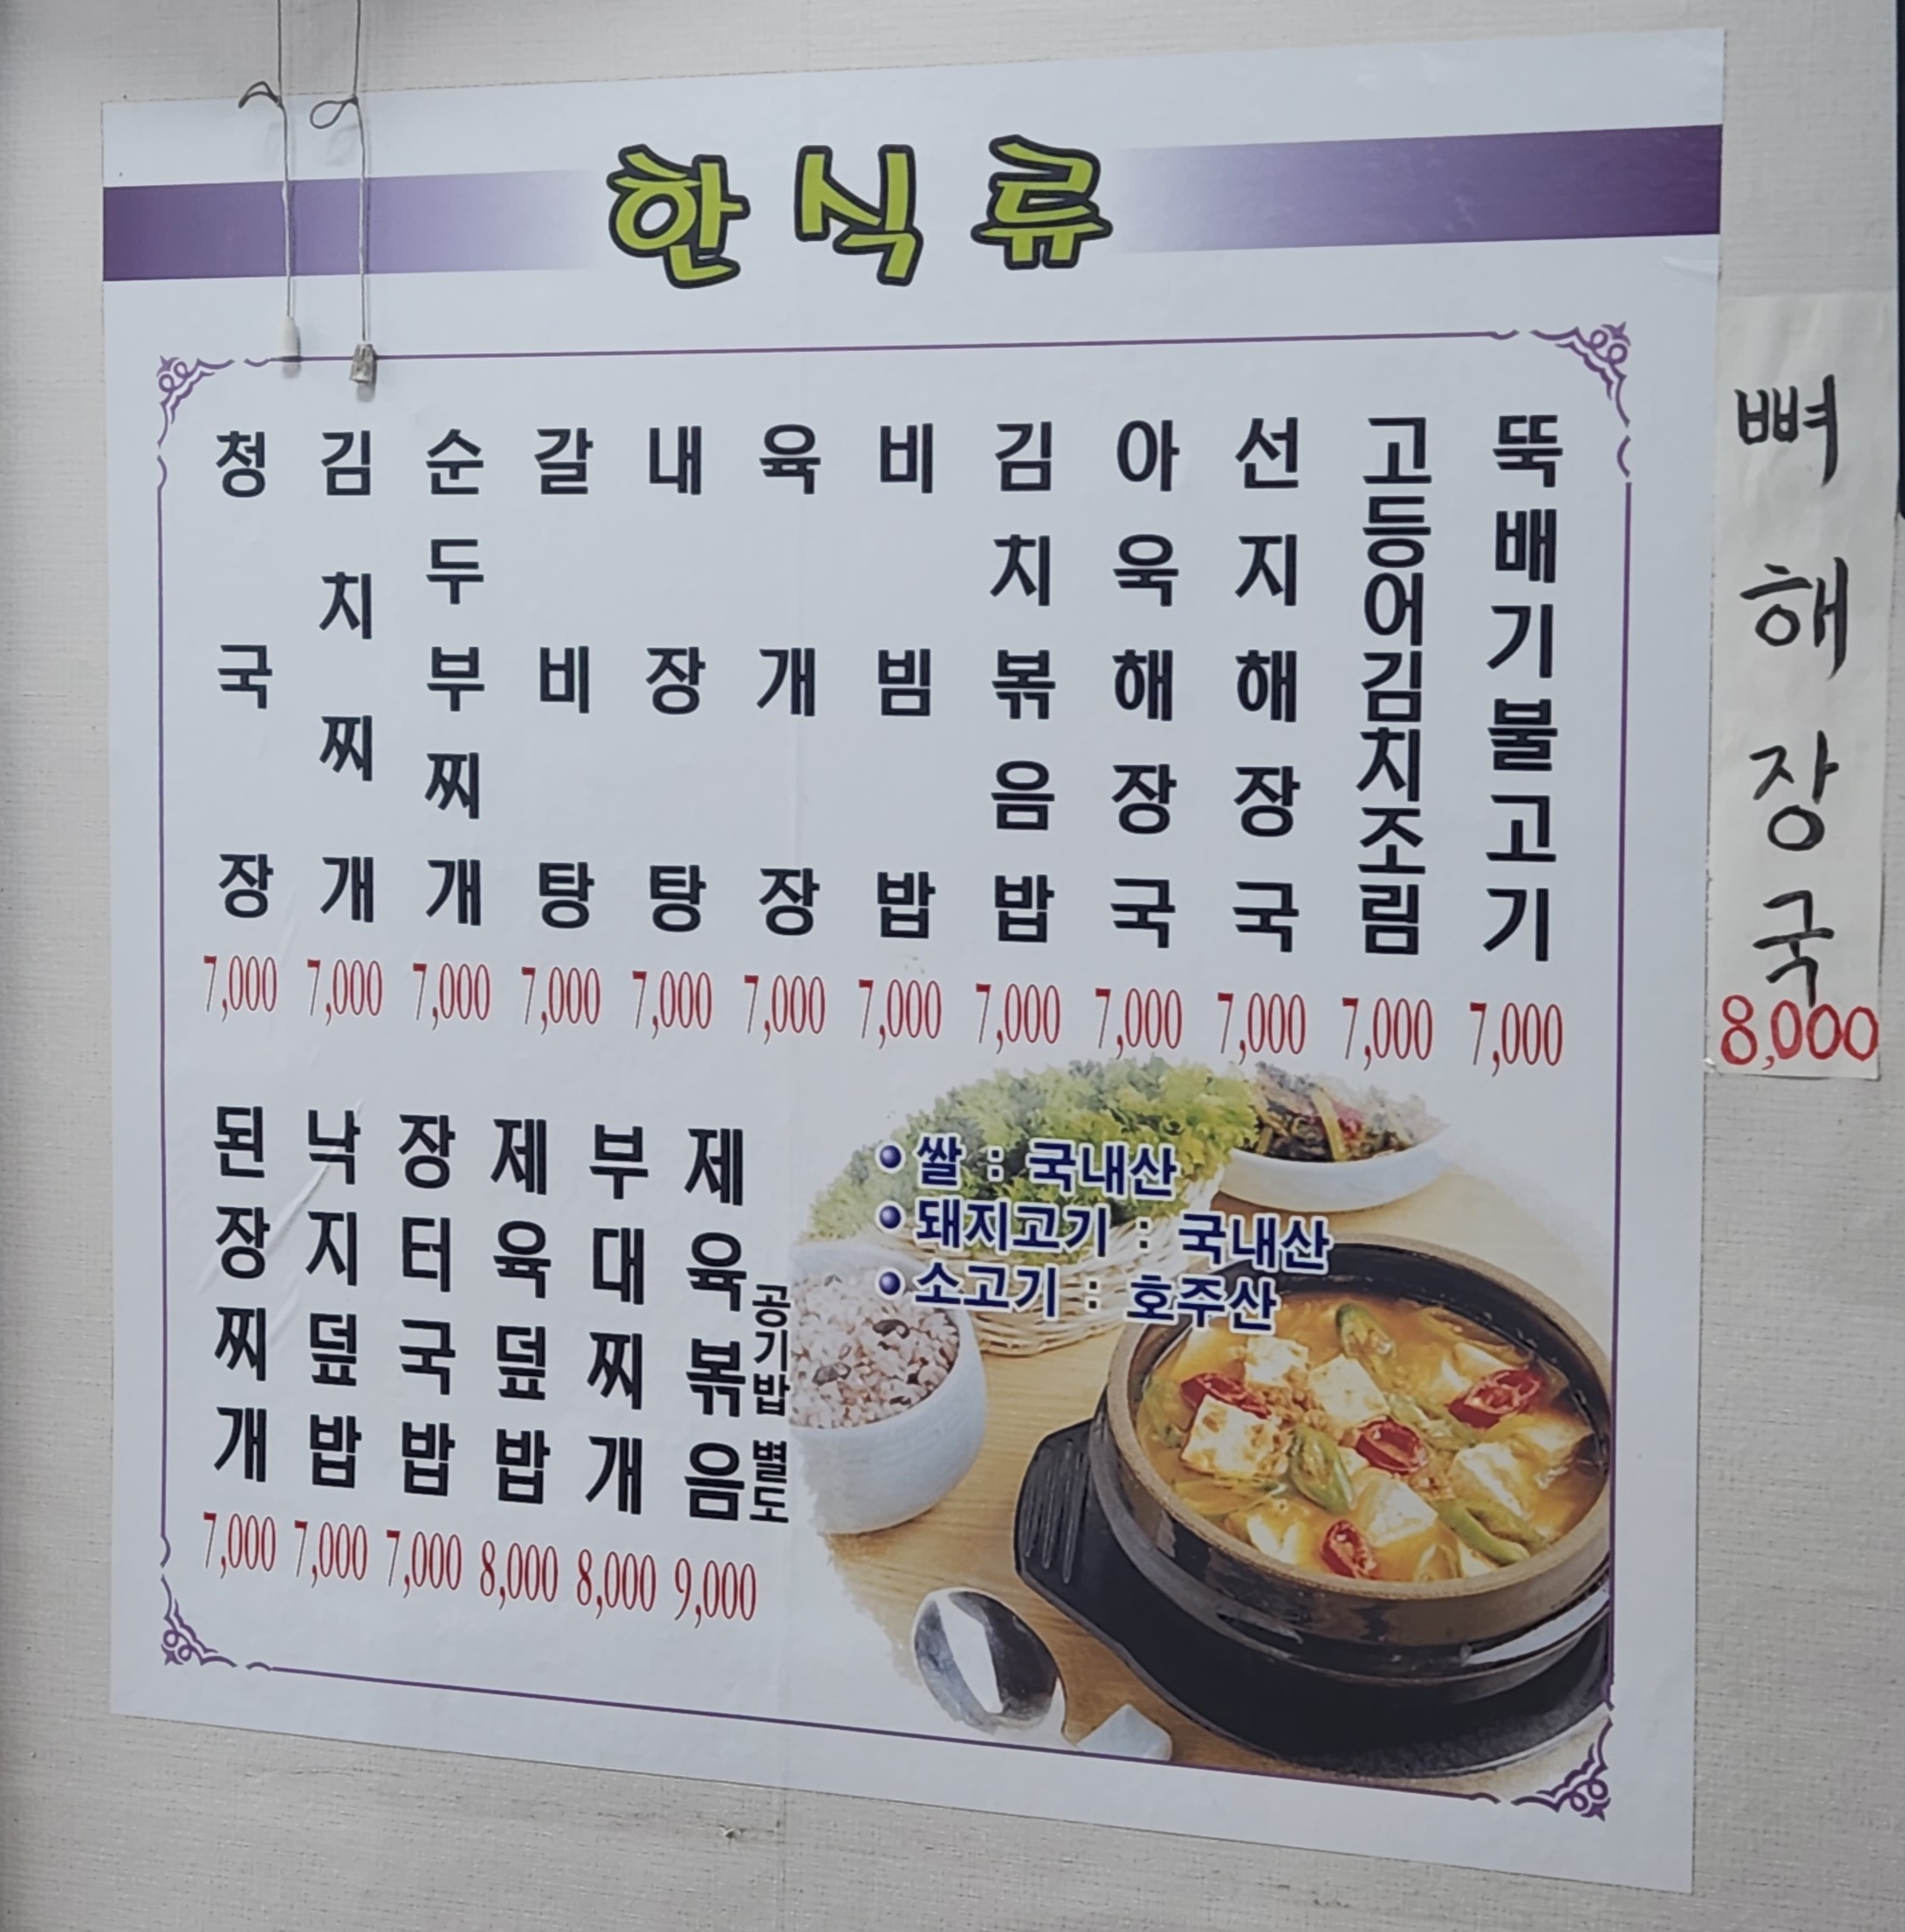 한식류
청국장
7,000
김치찌개
7,000
순두부찌개
7,000
갈비탕
7,000
내장탕
7,000
육개장
7,000
비빔밥
7,000
김치볶음밥
7,000
아욱해장국
7,000
선지해장국
7,000
고등어김치조림
7,000
뚝배기불고기
7,000
뼈해장국
8,000
된장찌개
7,000
낙지덮밥
7,000
장터국밥
7,000
제육덮밥
8,000
부대찌개
8,000
제육볶음
공기밥 별도
9,000
쌀 : 국내산
돼지고기 : 국내산
소고기 : 호주산